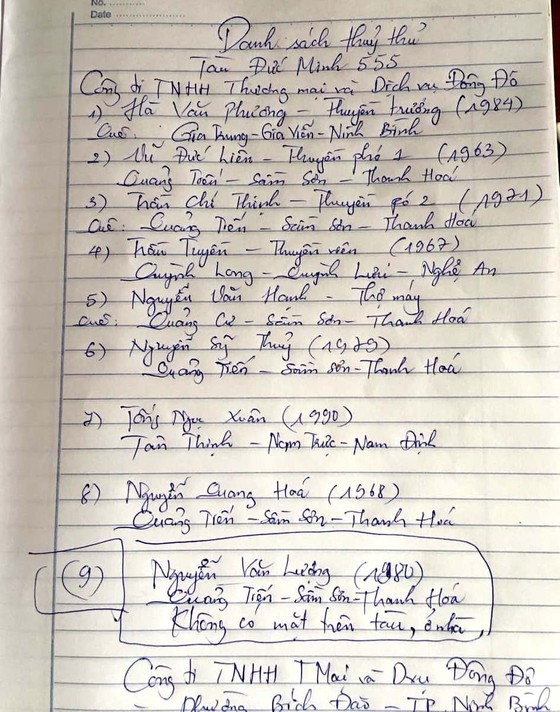 No.
Date
Danh sách thuỷ thủ
Tàu Đức Minh 555
Công ti TNHH Thương mại và Dịch vụ Đông Đô
1) Hà Văn Phương - Thuyền trưởng (1984)
Quê: Gia Trung - Gia Viễn - Ninh Bình
2) Vũ Đức Liên - Thuyền phó 1 (1963)
Quảng Tiến - Sầm Sơn - Thanh Hoá
3) Trần Chí Thịnh - Thuyền phó 2 (1971)
Quê: Quảng Tiến - Sầm Sơn - Thanh Hoá
4) Trần Truyền - Thuyền viên (1967)
Quỳnh Long - Quỳnh Lưu - Nghệ An
5) Nguyễn Văn Hanh - Thợ máy
Quê: Quảng Cư - Sầm Sơn - Thanh Hoá
6) Nguyễn Sỹ Thuỷ (1979)
Quảng Tiến - Sầm Sơn - Thanh Hoá
7) Tống Ngọc Xuân (1990)
Tân Thịnh - Nam Trực - Nam Định
8) Nguyễn Quang Hoá (1968)
Quảng Tiến - Sầm Sơn - Thanh Hoá
(9) Nguyễn Văn Lượng (1980)
Quảng Tiến - Sầm Sơn - Thanh Hoá
Không có mặt trên tàu, ở nhà,
Công ti TNHH TMại và Dvụ Đông Đô
- Phường Bích Đào - TP Ninh Bình